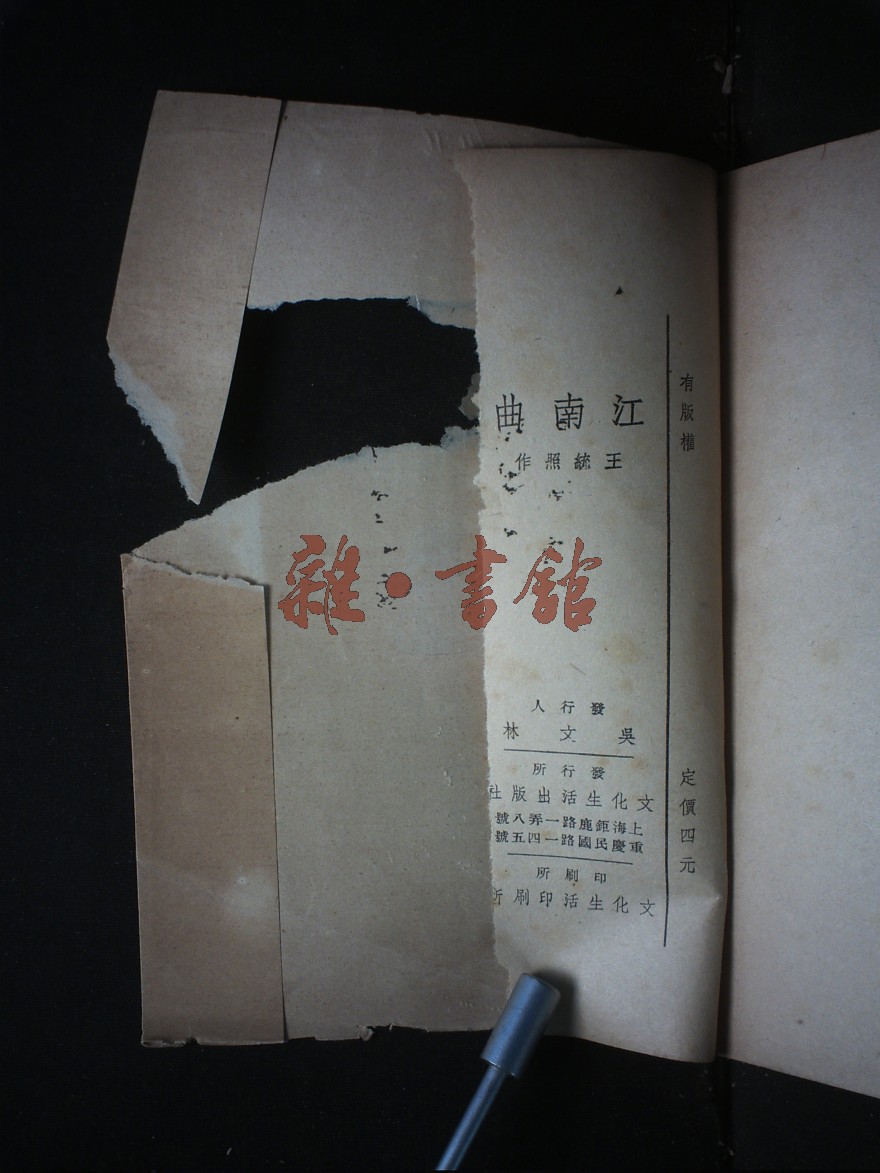 有版權
定價四元
江南曲
王統照作
發行人
吳文林
發行所
文化生活出版社
上海鉅鹿路一弄八號
重慶民國路一四五號
印刷所
文化生活印刷所
雜·書館